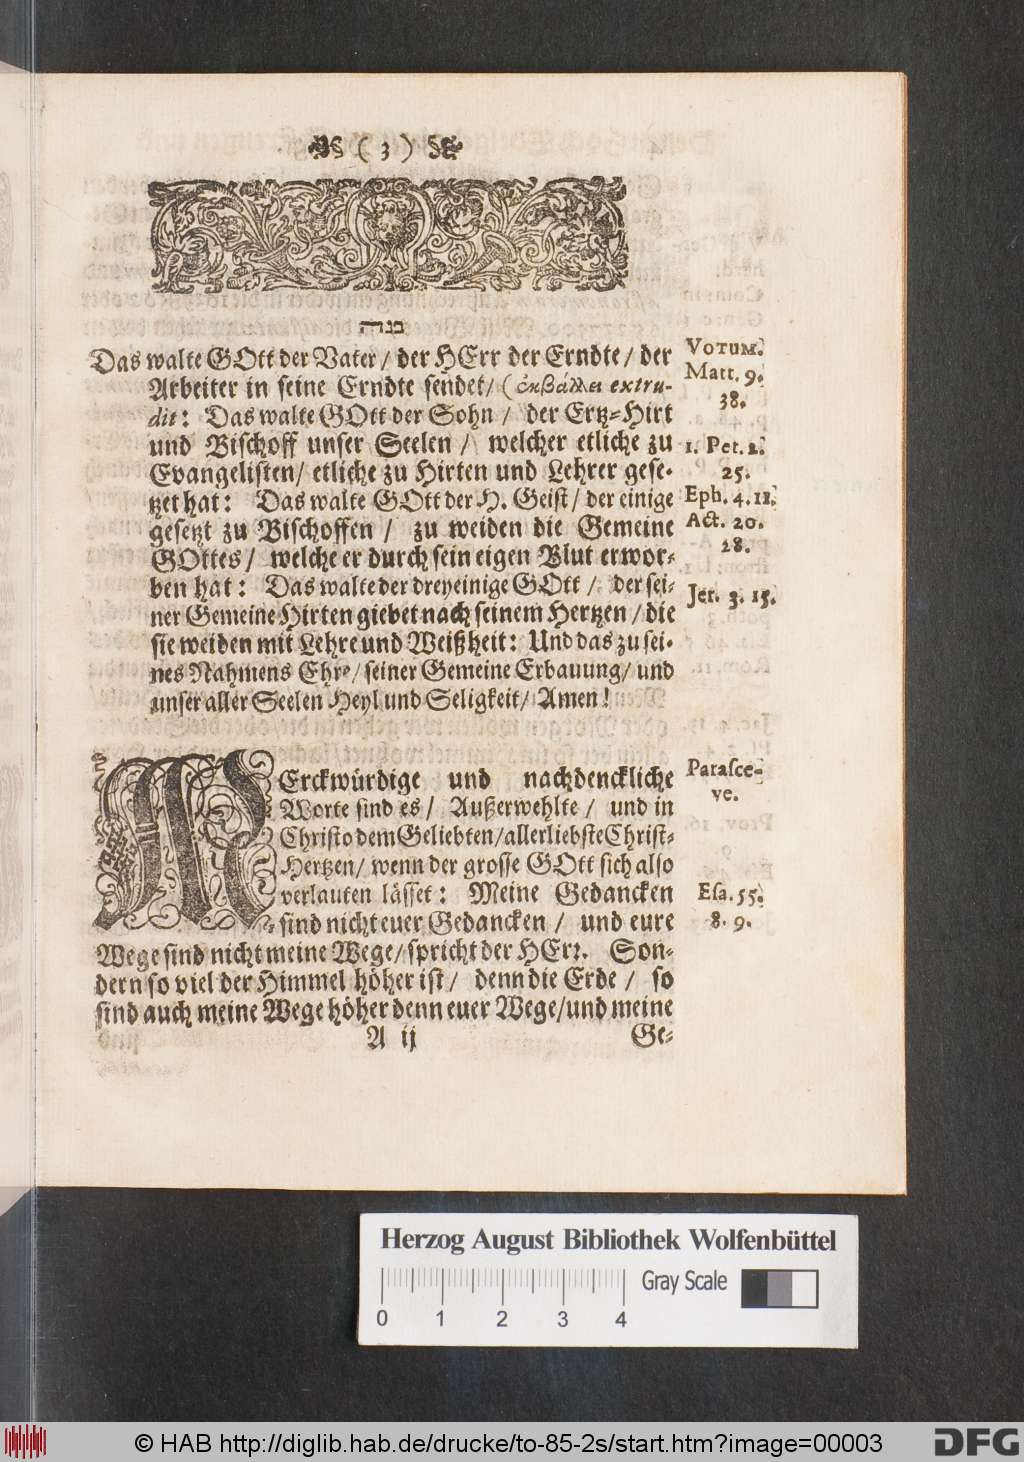 ( 3 )
בגדה
Das walte GOtt der Vater / der HErr der Erndte / der
Arbeiter in seine Erndte sendet / (ἐκβάλλει extru-
dit: Das walte GOtt der Sohn / der Ertz-Hirt
und Bischoff unser Seelen / welcher etliche zu
Evangelisten / etliche zu Hirten und Lehrer gese-
tzet hat: Das walte GOtt der H. Geist / der einige
gesetzt zu Bischoffen / zu weiden die Gemeine
GOttes / welche er durch sein eigen Blut erwor-
ben hat: Das walte der dreyeinige GOtt / der sei-
ner Gemeine Hirten giebet nach seinem Hertzen / die
sie weiden mit Lehre und Weißheit: Und das zu sei-
nes Nahmens Ehre / seiner Gemeine Erbauung / und
unser aller Seelen Heyl und Seligkeit / Amen!
VOTUM.
Matt. 9.
38.
1. Pet. 2.
25.
Eph. 4. 11.
Act. 20.
28.
Jer. 3. 15.
MErckwürdige und nachdenckliche
Worte sind es / Außerwehlte / und in
Christo dem Geliebten / allerliebste Christ-
Hertzen / wenn der grosse GOtt sich also
verlauten lässet: Meine Gedancken
sind nicht euer Gedancken / und eure
Wege sind nicht meine Wege / spricht der HErr. Son-
dern so viel der Himmel höher ist / denn die Erde / so
sind auch meine Wege höher denn euer Wege / und meine
A ij Ge-
Parasce-
ve.
Esa. 55.
8. 9.
Herzog August Bibliothek Wolfenbüttel
Gray Scale
0 1 2 3 4
© HAB http://diglib.hab.de/drucke/to-85-2s/start.htm?image=00003
DFG